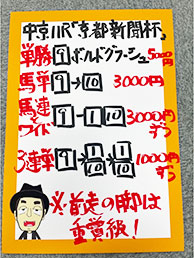 中京11R「京都新聞杯」
単勝 9 ボルドグフーシュ 5000円
馬単 9→10 3000円
馬連とワイド 9-1 10 3000円ずつ
3連単 9→1 10→1 10 1000円ずつ
※前走の脚は
重賞級!